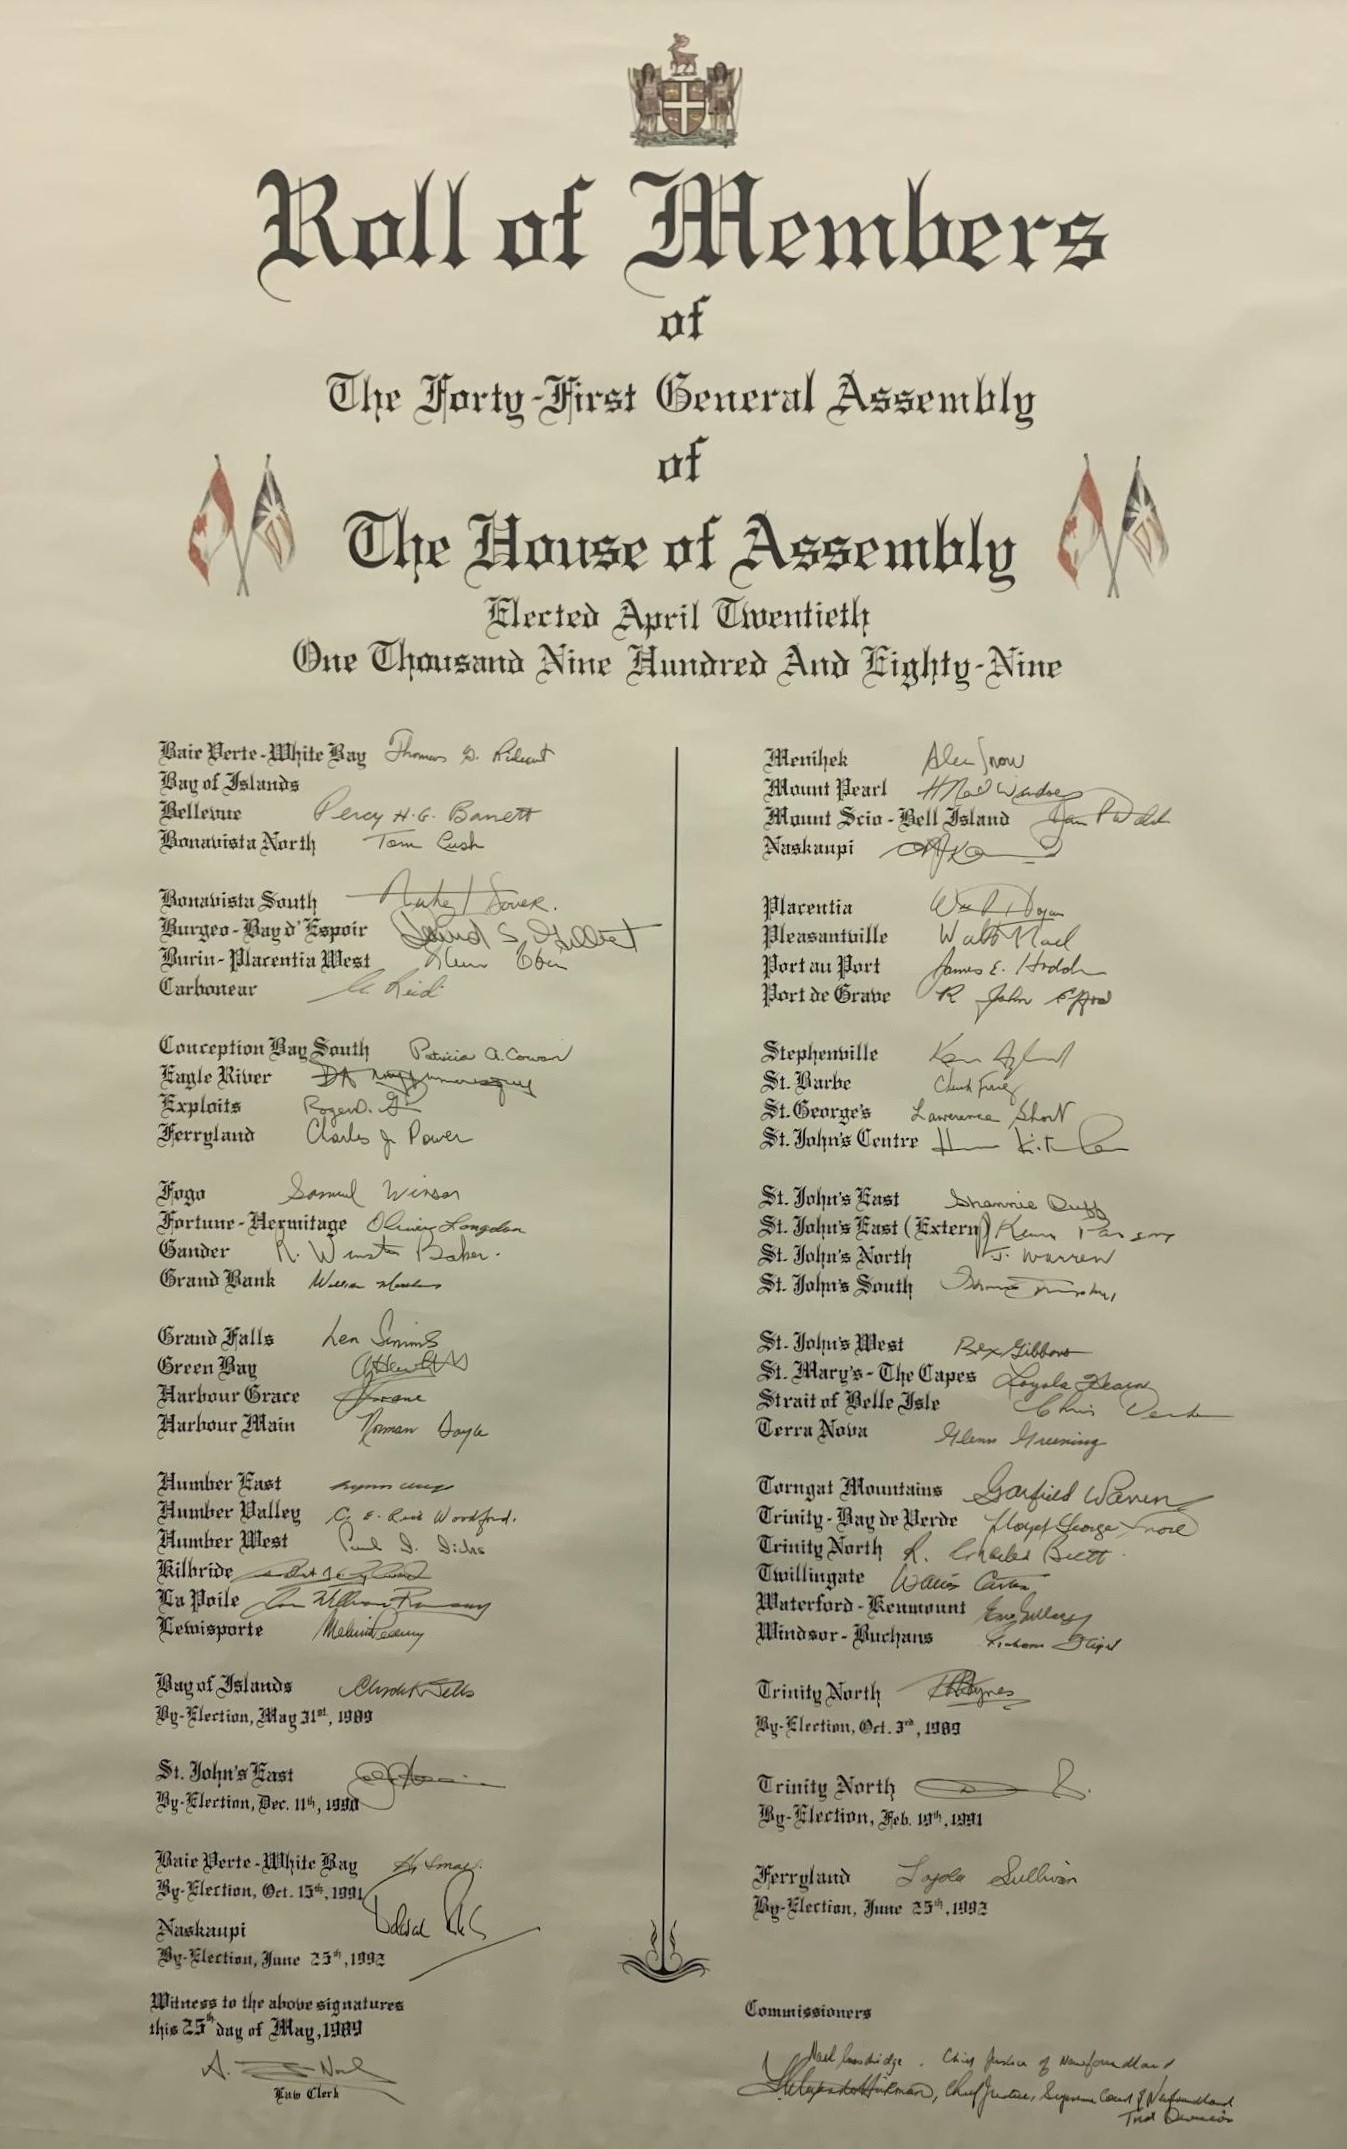 Roll of Members
of
The Forty-First General Assembly
of
The House of Assembly
Elected April Twentieth
One Thousand Nine Hundred And Eighty-Nine
Baie Verte-White Bay Thomas G. Rideout
Bay of Islands
Bellevue Percy H.G. Barrett
Bonavista North Tom Lush
Bonavista South
Burgeo-Bay d'Espoir David S. Gilbert
Burin-Placentia West Glenn Tobin
Carbonear Reid
Conception Bay South Patricia A. Cowan
Eagle River
Exploits Roger D.
Ferryland Charles J Power
Fogo Samuel Winsor
Fortune-Hermitage Oliver Langdon
Gander R. Winston Baker.
Grand Bank William Matthews
Grand Falls Len Simms
Green Bay
Harbour Grace
Harbour Main Norman Doyle
Humber East Lynn Verge
Humber Valley C. E. Rick Woodford.
Humber West Paul D. Dicks
Kilbride
La Poile William Ramsay
Lewisporte Melvin Penney
Bay of Islands Clyde K Wells
By-Election, May 31st, 1989
St. John's East
By-Election, Dec. 11th, 1990
Baie Verte-White Bay H. Small.
By-Election, Oct. 15th, 1991
Naskaupi
By-Election, June 25th, 1992
Witness to the above signatures
this 25th day of May, 1989
Law Clerk
Menihek Alec Snow
Mount Pearl H Neil Windsor
Mount Scio-Bell Island Jim P Walsh
Naskaupi
Placentia Wm P Hogan
Pleasantville Walt Noel
Port au Port James E. Hodder
Port de Grave R John Efford
Stephenville Kevin Aylward
St. Barbe Chuck Furey
St. George's Lawrence Short
St. John's Centre
St. John's East Shannie Duff
St. John's East (Extern) Kevin Parsons
St. John's North J. Warren
St. John's South Thomas Murphy
St. John's West Rex Gibbons
St. Mary's-The Capes Loyola Hearn
Strait of Belle Isle Chris Decker
Terra Nova Glenn Greening
Torngat Mountains Garfield Warren
Trinity-Bay de Verde Lloyd George Snow
Trinity North R. Charles Brett
Twillingate Walter Carter
Waterford-Kenmount Eric Gullage
Windsor-Buchans Graham Flight
Trinity North Hynes
By-Election, Oct. 3rd, 1989
Trinity North
By-Election, Feb. 19th, 1991
Ferryland Loyola Sullivan
By-Election, June 25th, 1992
Commissioners
Noel Goodridge. Chief Justice of Newfoundland
T. Alexander Hickman, Chief Justice, Supreme Court of Newfoundland
Trial Division